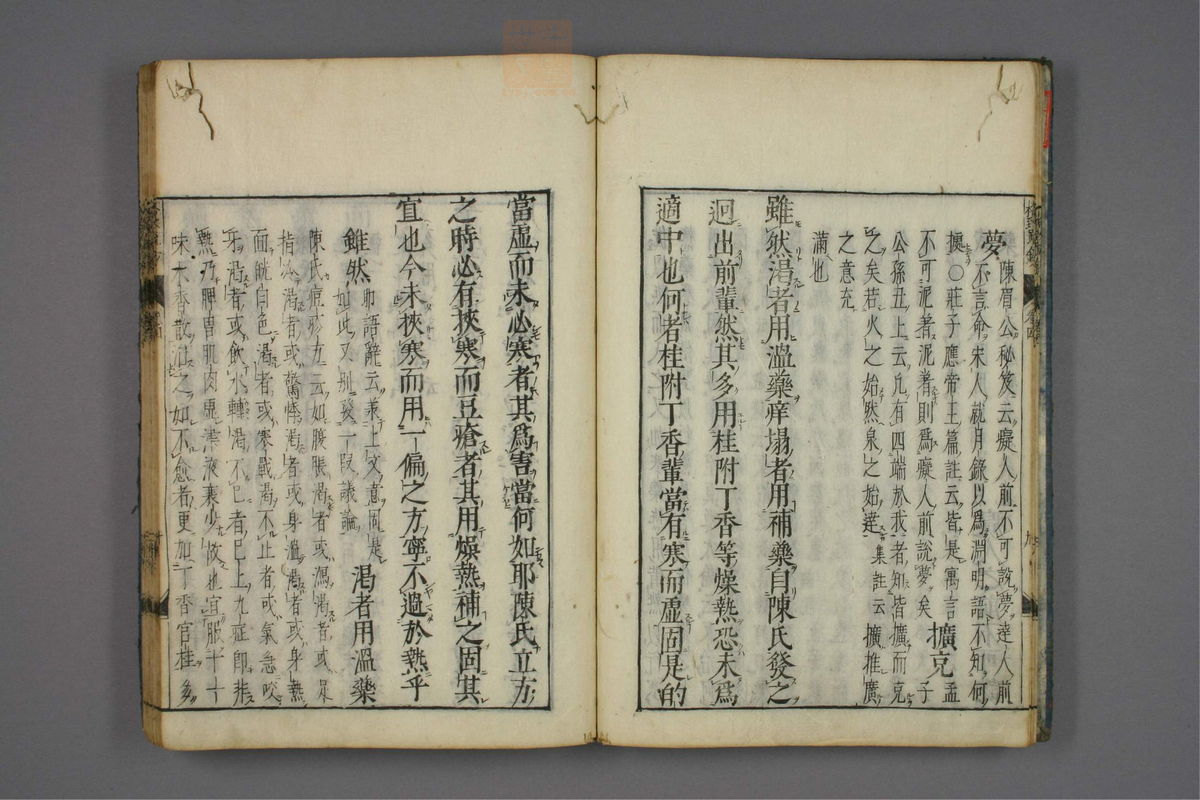 夢 陳眉公秘笈云癡人前不可説夢達人前
不可言命宋人就月錄以爲淵明語不知何
㨿○莊子應帝王篇註云皆是寓言 擴充 孟
不可泥著泥著則爲癡人前説夢矣 子
公孫丑上云凡有四端於我者知皆擴而充
之矣若火之始然泉之始達 集註云 擴推廣
之意充
滿也
雖然渴者用溫藥痒塌者用補藥自陳氏發之
迥出前輩然其多用桂附丁香等燥熱恐未爲
適中也何者桂附丁香輩當有寒而虛固是的
當虛而未必寒者其爲害當何如耶陳氏立方
之時必有挾寒而豆瘡者其用燥熱補之固其
宜也今未挾寒而用一偏之方寧不過於熱乎
雖然 卽語辭云兼上文意固是
如此又别發一段議論 渴者用溫藥
陳氏痘疹方云如腹脹渴者或瀉渴者或足
指冷渴者或驚悸渴者或身溫渴者或身熱
面㿠白色渴者或寒戰渴不止者或氣急咬
牙渴者或飲水轉渴不已者已上九症卽非
熱乃脾胃肌肉虛津液衰少故也宜服十十
味木香散治之如不愈者更加丁香官桂多